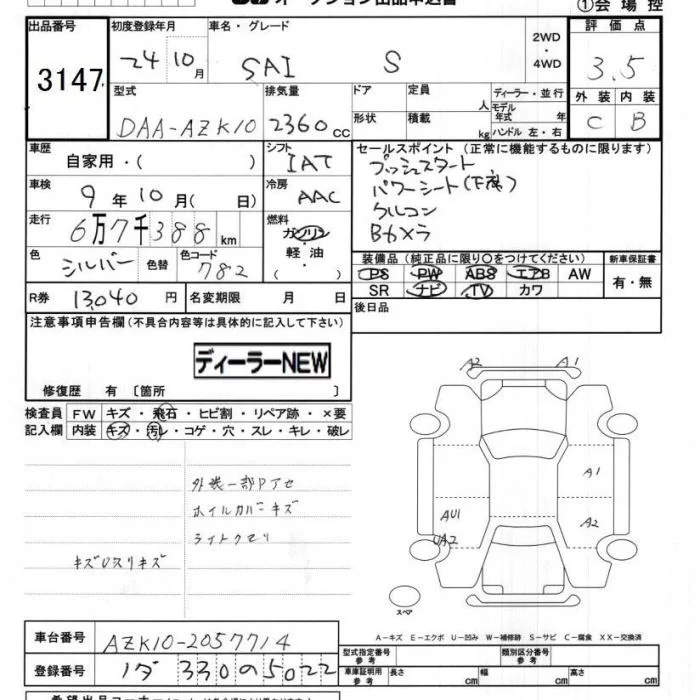 オークション出品申込書
①会場控
出品番号
3147
初度登録年月
24年10月
車名・グレード
SAI S
2WD・4WD
評価点
3.5
外装 内装
C B
型式
DAA-AZK10
排気量
2360cc
ドア
形状
定員 人
積載 kg
ディーラー・並行
モデル年式 年
ハンドル 左・右
車歴
自家用・( )
シフト
IAT
セールスポイント (正常に機能するものに限ります)
プッシュスタート
パワーシート
クルコン
Bカメラ
車検
9年10月( 日)
冷房
AAC
走行
6万7千388km
燃料
ガソリン
軽油
( )
色
シルバー
色替
色コード
782
装備品 (純正品に限り〇をつけてください)
PS PW ABS エアB AW
SR ナビ TV カワ
新車保証書
有・無
R券 13,040円
名変期限 月 日
後日品
注意事項申告欄(不具合内容等は具体的に記入して下さい)
ディーラーNEW
修復歴 有 〔箇所 〕
検査員記入欄
FW キズ・飛石・ヒビ割・リペア跡・×要
内装 キズ・汚レ・コゲ・穴・スレ・キレ・破レ
外装一部Pアセ
ホイルカバーキズ
ライトクモリ
キズUスリキズ
A2 A1
A1
AU1 A2
UA2
スペア
A-キズ E-エクボ U-凹み W-補修跡 S-サビ C-腐食 XX-交換済
車台番号
AZK10-2057714
登録番号
330の5022
型式指定番号
参考
類別区分番号
参考
車庫証明用
参考
長さ cm
幅 cm
高さ cm